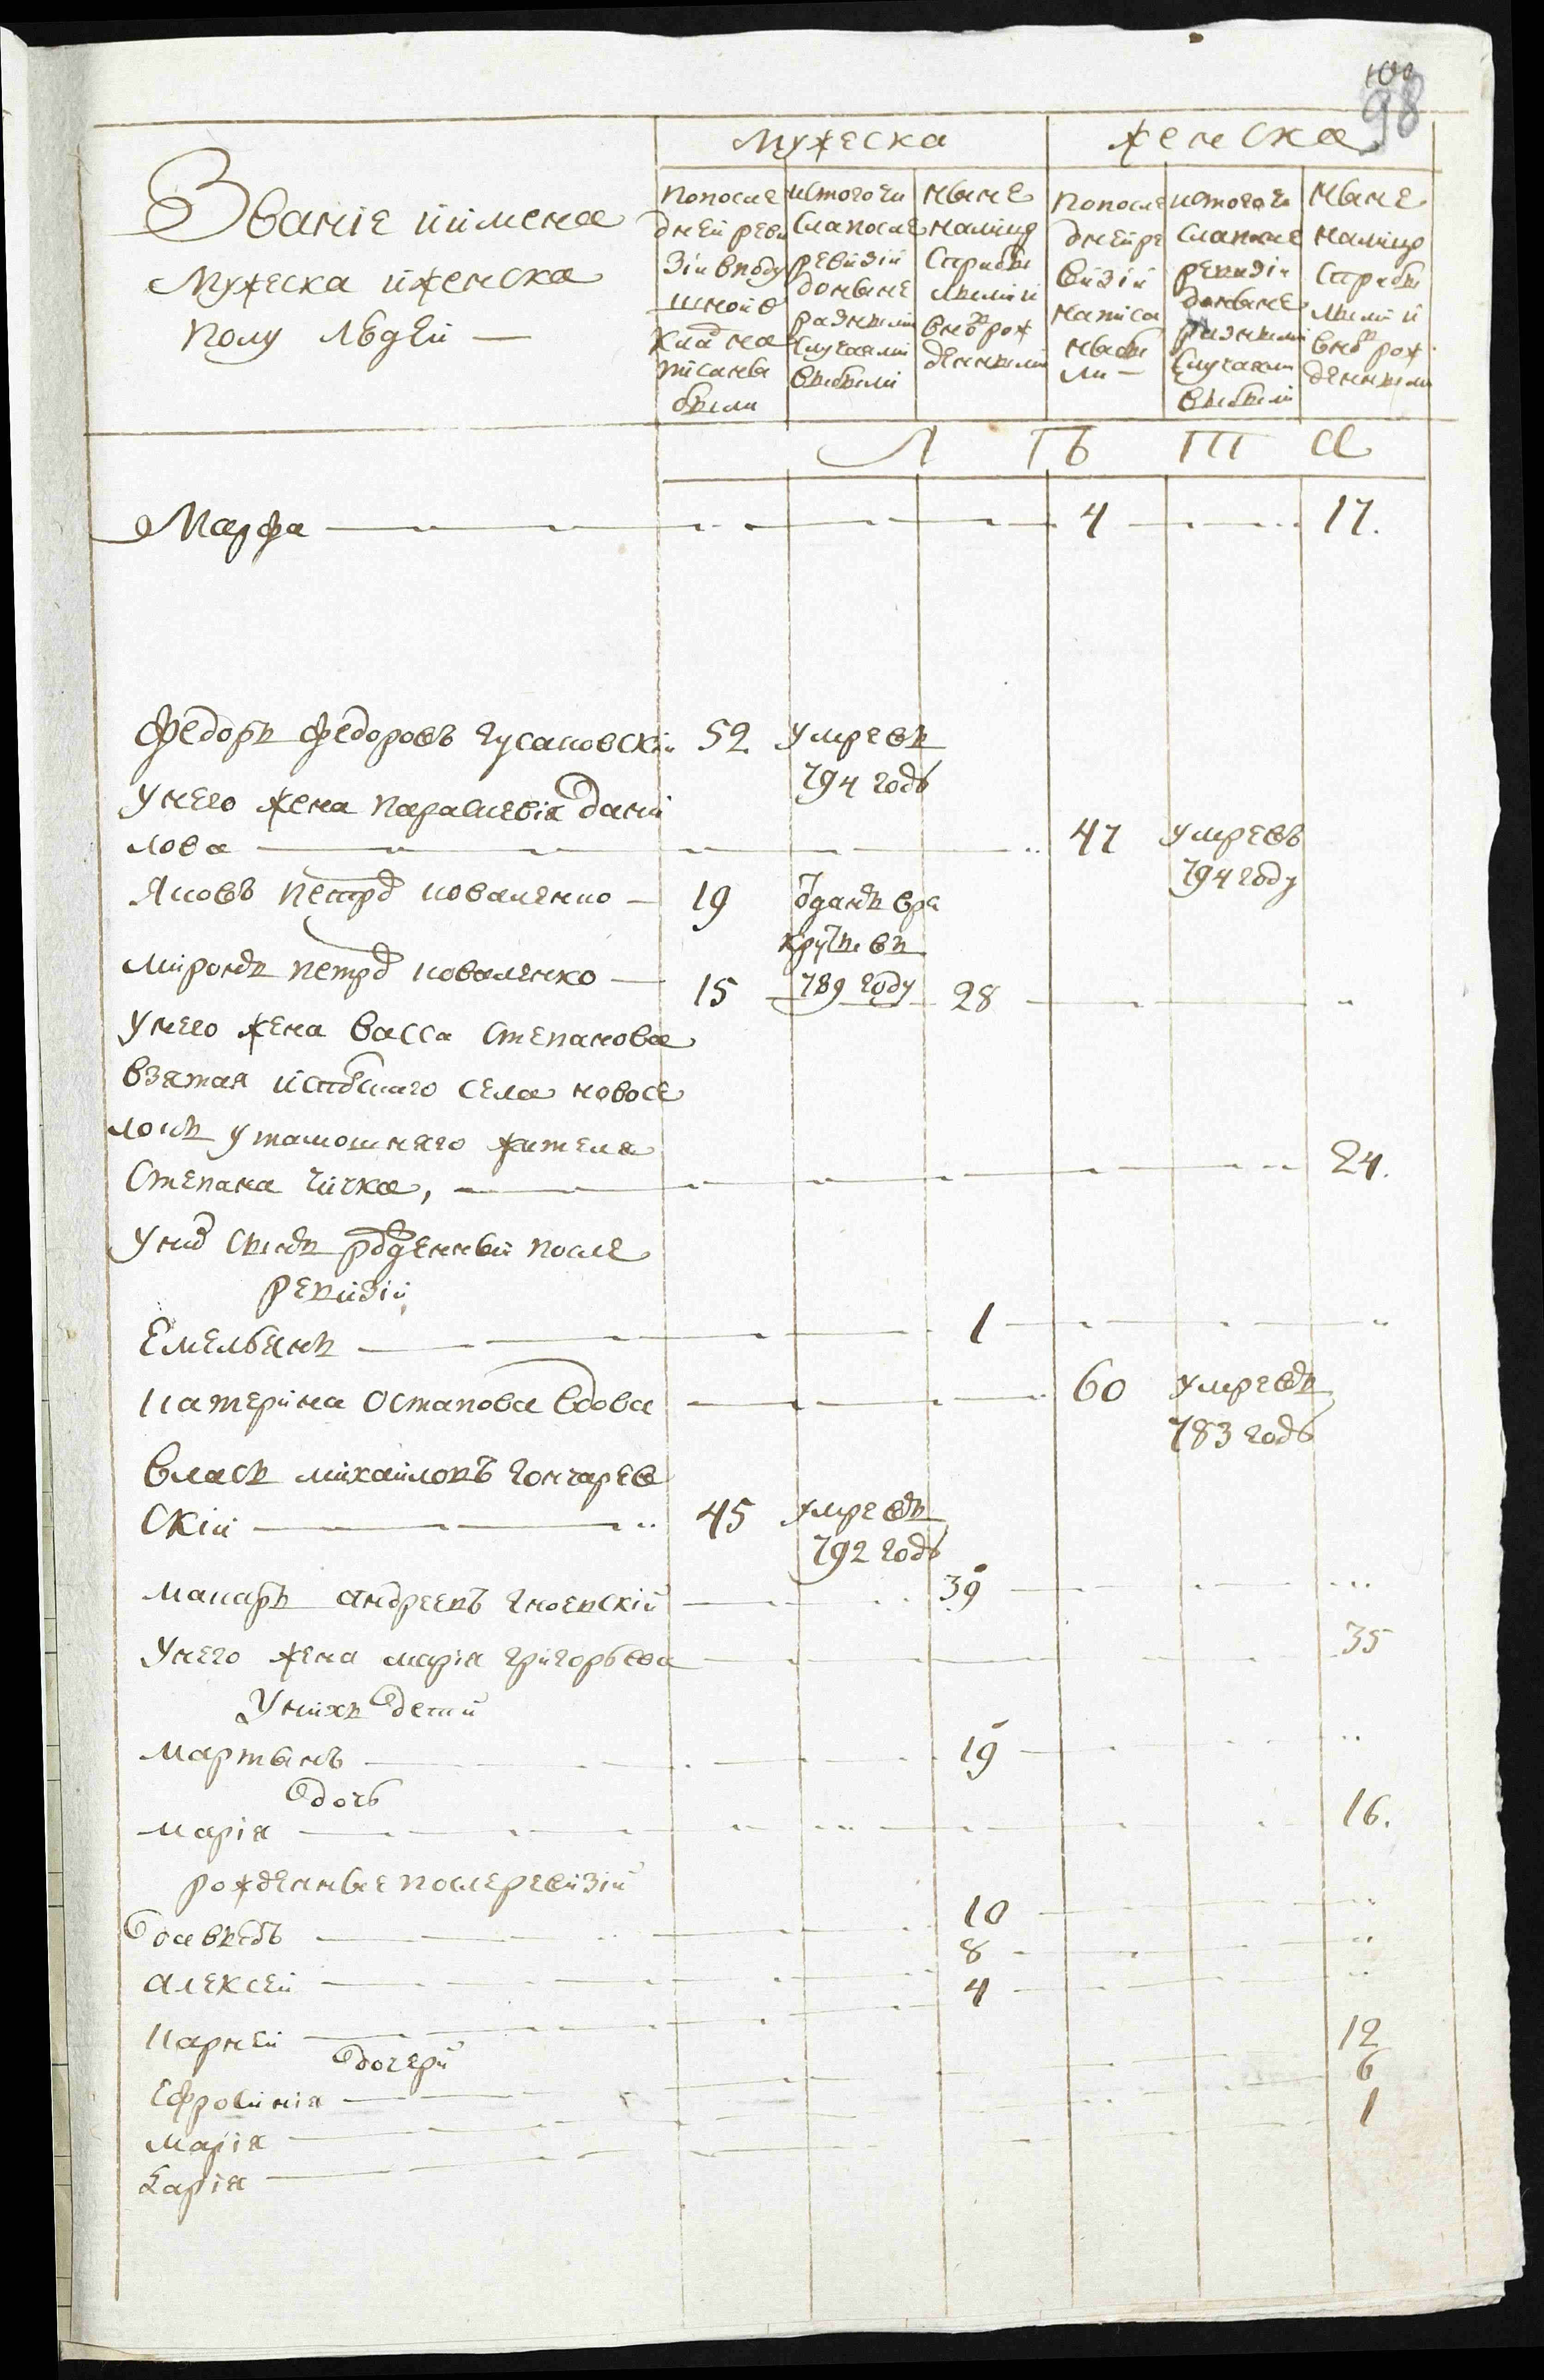 100
98
Званіе иимена
Мужеска иженска
полу людей —
Мужеска
женска
Попосле
дней реви
зіи вподу
шной о
клад на
писаны
были
Истого чи
сла после
ревизіи
до ныне
разными
случаями
выбыли
Ныне
на лицо
Сприбы
лыми и
внов рож
денными
Попосле
дней ре
визіи
написа
ны бы
ли —
Истого чи
сла после
ревизіи
до ныне
разными
случаями
выбыли
Ныне
на лицо
Сприбы
лыми и
внов рож
денными
Л ѣ т а
Марфа 4 17.
Федоръ Федоровъ Гусаковскій 52 умре въ
794 годѣ
У него жена Параскевія Дани
лова 47 умре въ
794 году
Яковъ Петров Коваленко 19 отданъ в ре
круты въ
789 году
Миронъ Петров Коваленко 15 28
У него жена Васса Степанова
взятая села новосе
локъ у тамошняго жителя
Степана Чичка, 24.
У них сынъ рожденный после
ревизіи
Емельянъ 1
Катерина Остапова вдова 60 умре въ
783 годѣ
Власъ Михайловъ Гончарев
скій 45 умре въ
792 годѣ
Макаръ Андреевъ Гноевскій 39
У него жена Марія Григорьева 35
У нихъ дети
Мартынъ 19
дочь
Марія 16.
рожденные после ревизіи
Давыдъ 10
Алексей 8
Карней 4
дочери
Ефросинія 12
Марія 6
Дарія 1